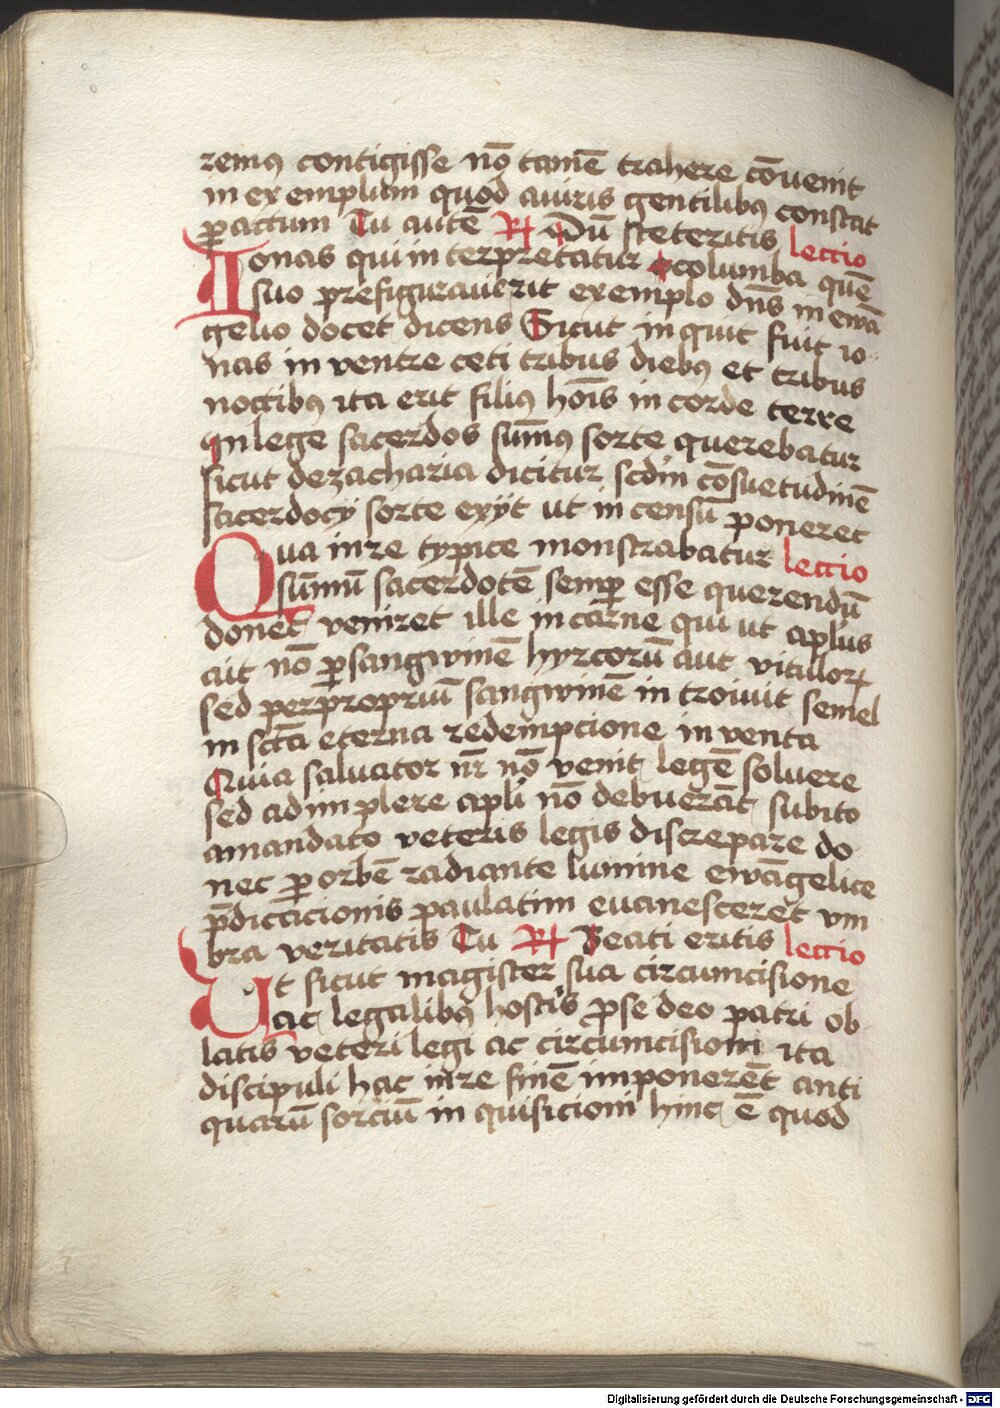 remꝰ contigisse nō tamē trahere cōuenit
in exemplum quod auiris gentilibꝰ constat
ꝑactum Tu autē ℟ Dū steteritis lectio
Ionas qui interpretatur columba quē
suo prefigurauerit exemplo dn̄s in ewā
gelio docet dicens Sicut inquit fuit io
nas in ventre ceti tribus diebꝰ et tribus
noctibꝰ ita erit filiꝰ hoīs in corde terre
In lege sacerdos sūmꝰ sorte querebatur
sicut de zacharia dicitur scd̄m cōsuetudinē
sacerdocij sorte exijt ut incensū poneret
Qua in re typice monstrabatur lectio
sūmū sacerdotē semꝑ esse querendū
donec veniret ille in carne qui ut apl̄us
ait nō ꝑ sangwinē hyrcorū aut vitulloꝝ
sed per propriū sangwinē introiuit semel
in sctā eterna redempcione inventa
Quia saluator nr̄ nō venit legē soluere
sed adimplere apl̄i nō debuerāt subito
amandato veteris legis discrepare do
nec ꝑ orbē radiante lumine ewāgelice
p̄dicacionis paulatim euanesceret vm
bra veritatis Tu ℟ Beati eritis lectio
Ut sicut magister sua circumcisione
ac legalibꝰ hostīs ꝓ se deo patri ob
latis veteri legi ac circumcisioni ita
discipuli hac in re finē imponerēt anti
quarū sorciū inquisicioni hinc ē quod
Digitalisierung gefördert durch die Deutsche Forschungsgemeinschaft - DFG